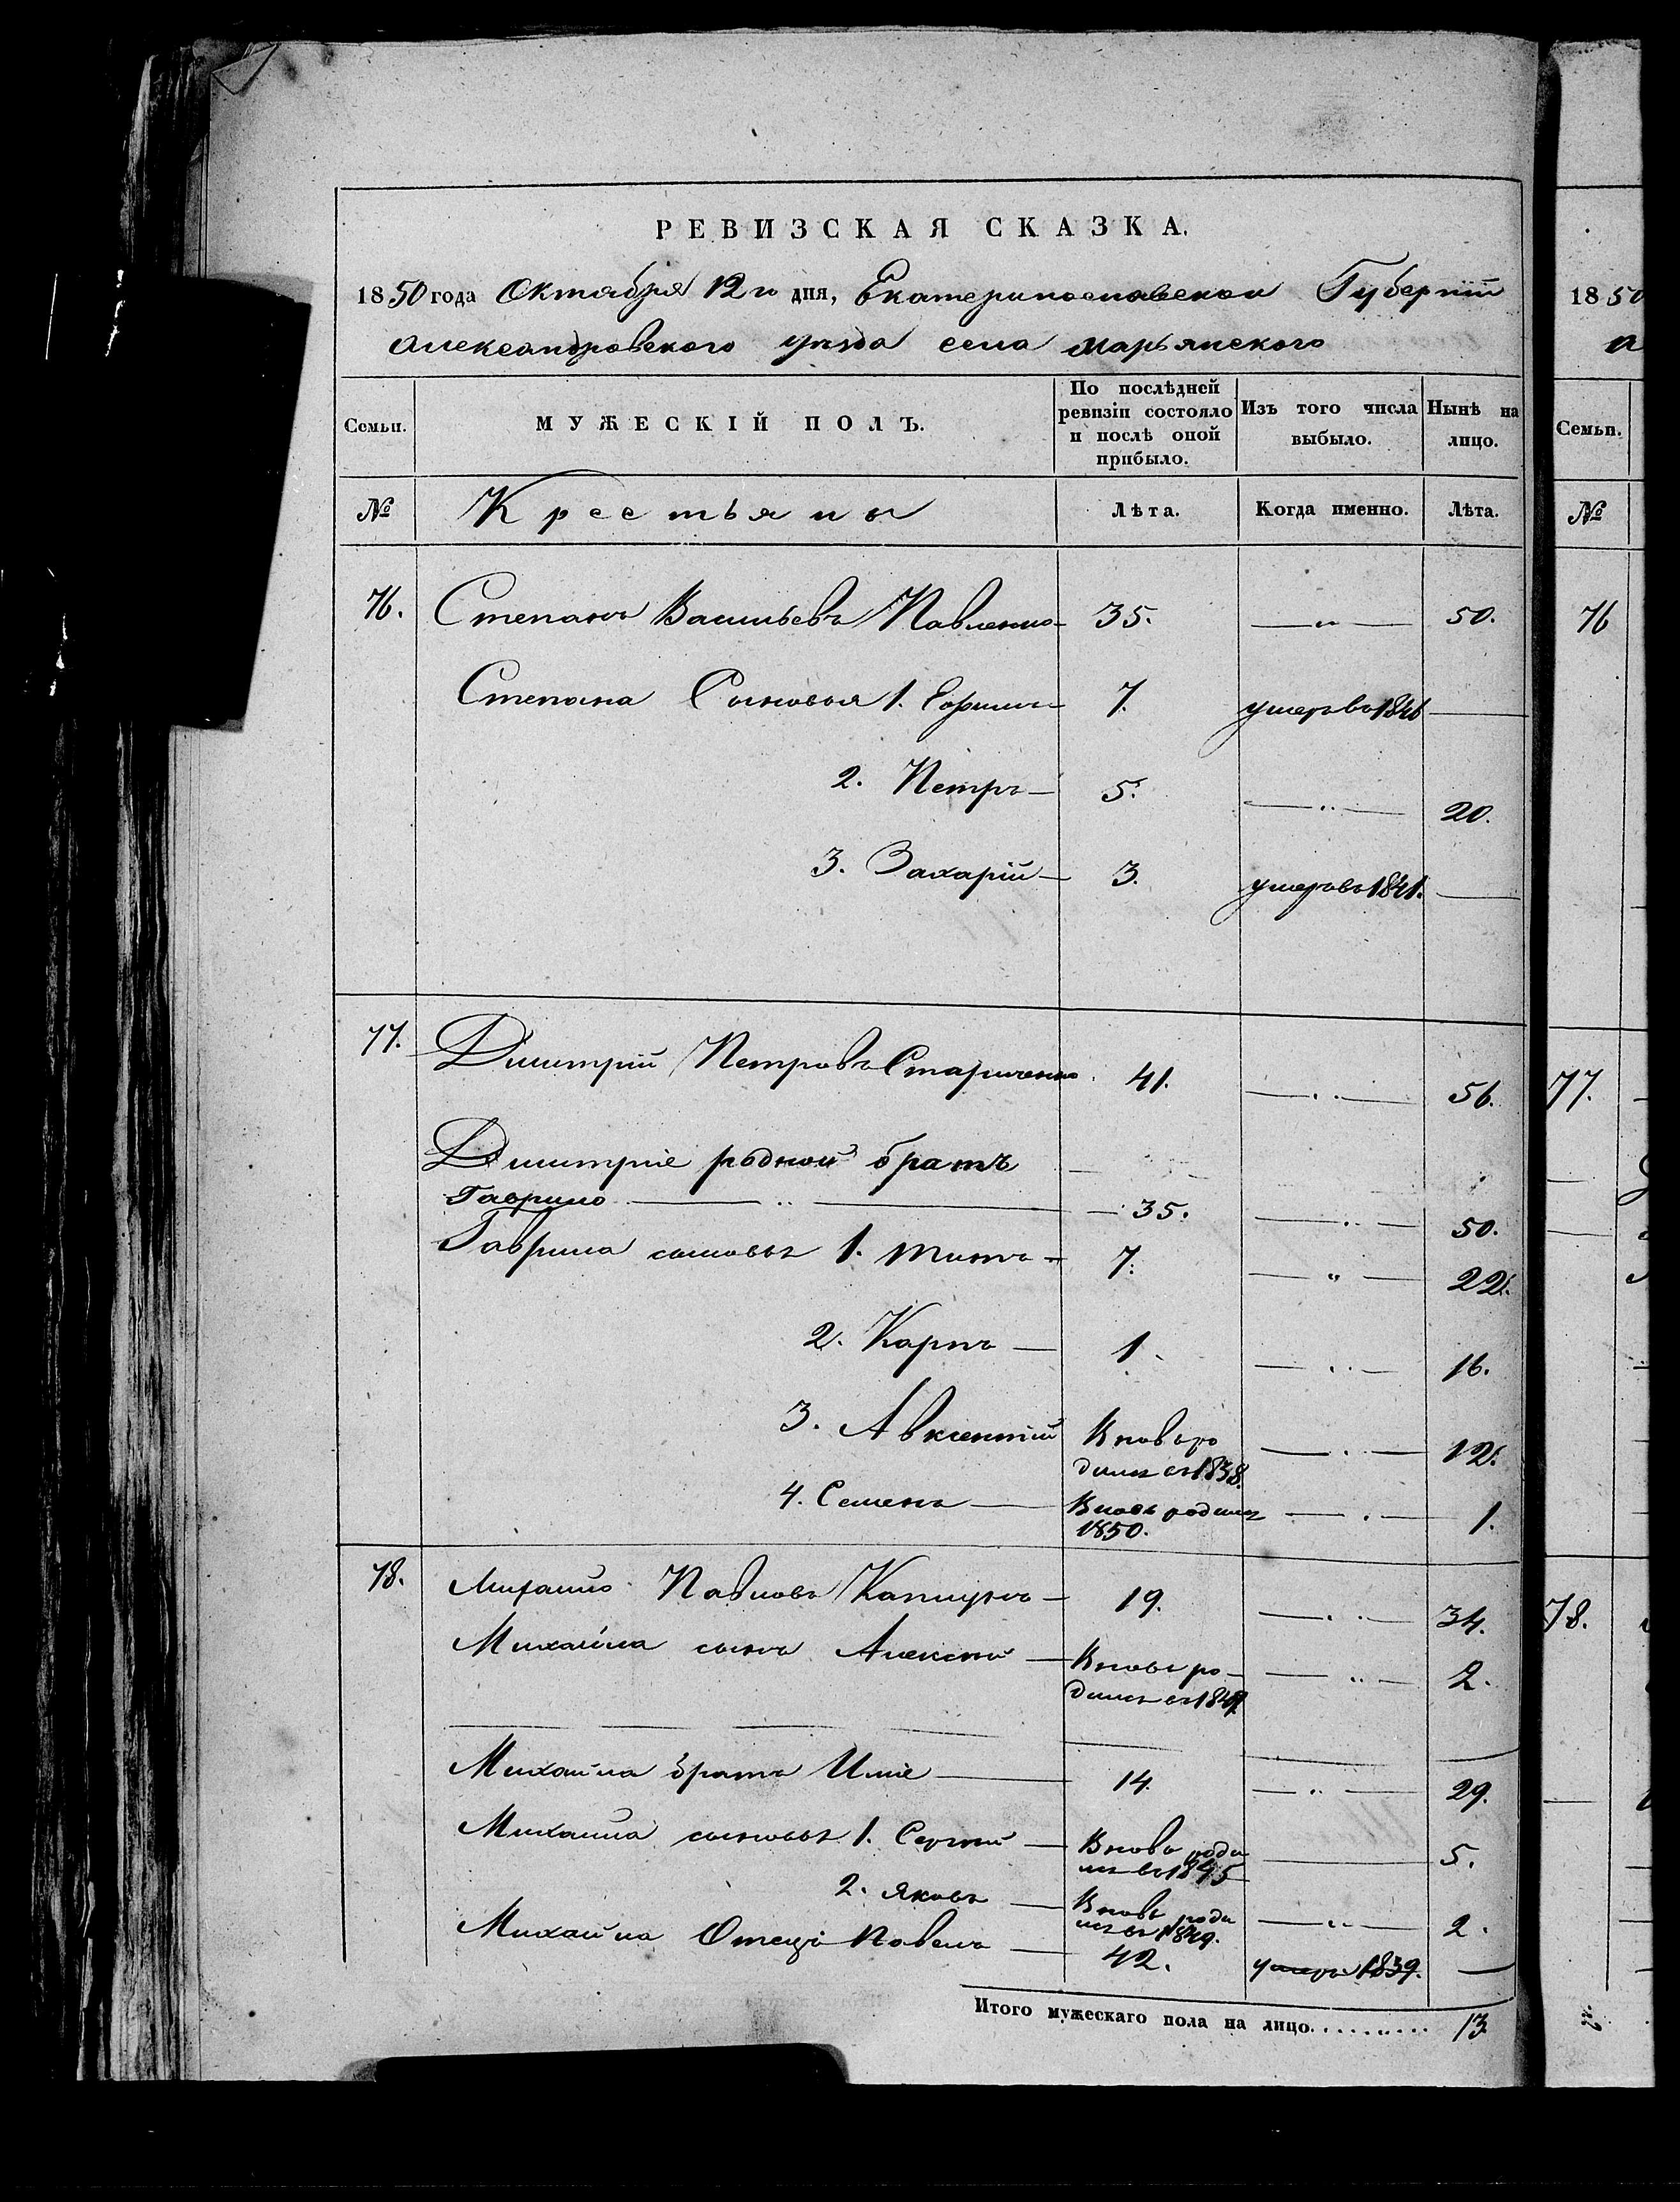 РЕВИЗСКАЯ СКАЗКА.
1850 года Октября 12го дня, Екатеринославской Губерніи
Александровского уѣзда села Марьянского
Семьи.
МУЖЕСКІЙ ПОЛЪ.
По послѣдней ревизіи состояло и послѣ оной прибыло.
Изъ того числа выбыло.
Нынѣ на лицо.
№ Крестьяны Лѣта. Когда именно. Лѣта.
76. Степанъ Васильевъ Павленко 35. —„— 50.
Степана Сыновья 1. Ефимъ 7. умеръ въ 1846 —
2. Петръ — 5. —„— 20.
3. Захарій — 3. умеръ въ 1841. —
77. Димитрій Петровъ Стариченко 41. —„— 56.
Димитріе родной братъ
Гаврило —„— 35. —„— 50.
Гаврила сыновья 1. Титъ 7. —„— 22.
2. Карпъ — 1. —„— 16.
3. Авксентій Вновь ро
дился въ 1838. —„— 12.
4. Семенъ — Вновь родился
1850. —„— 1.
78. Михайло Павловъ Капшукъ — 19. —„— 34.
Михайла сынъ Алексѣй — Вновь ро-
дился въ 1849. —„— 2.
Михайла братъ Иліе — 14. —„— 29.
Михайла сыновья 1. Сергѣй — Вновь роди
лся въ 1845 — 5.
2. Яковъ — Вновь роди
лся въ 1849. —„— 2.
Михайла Отецъ Павелъ — 42. умеръ 1839. —
Итого мужескаго пола на лицо.......... 13
1850
Семьи.
№
76
77.
78.